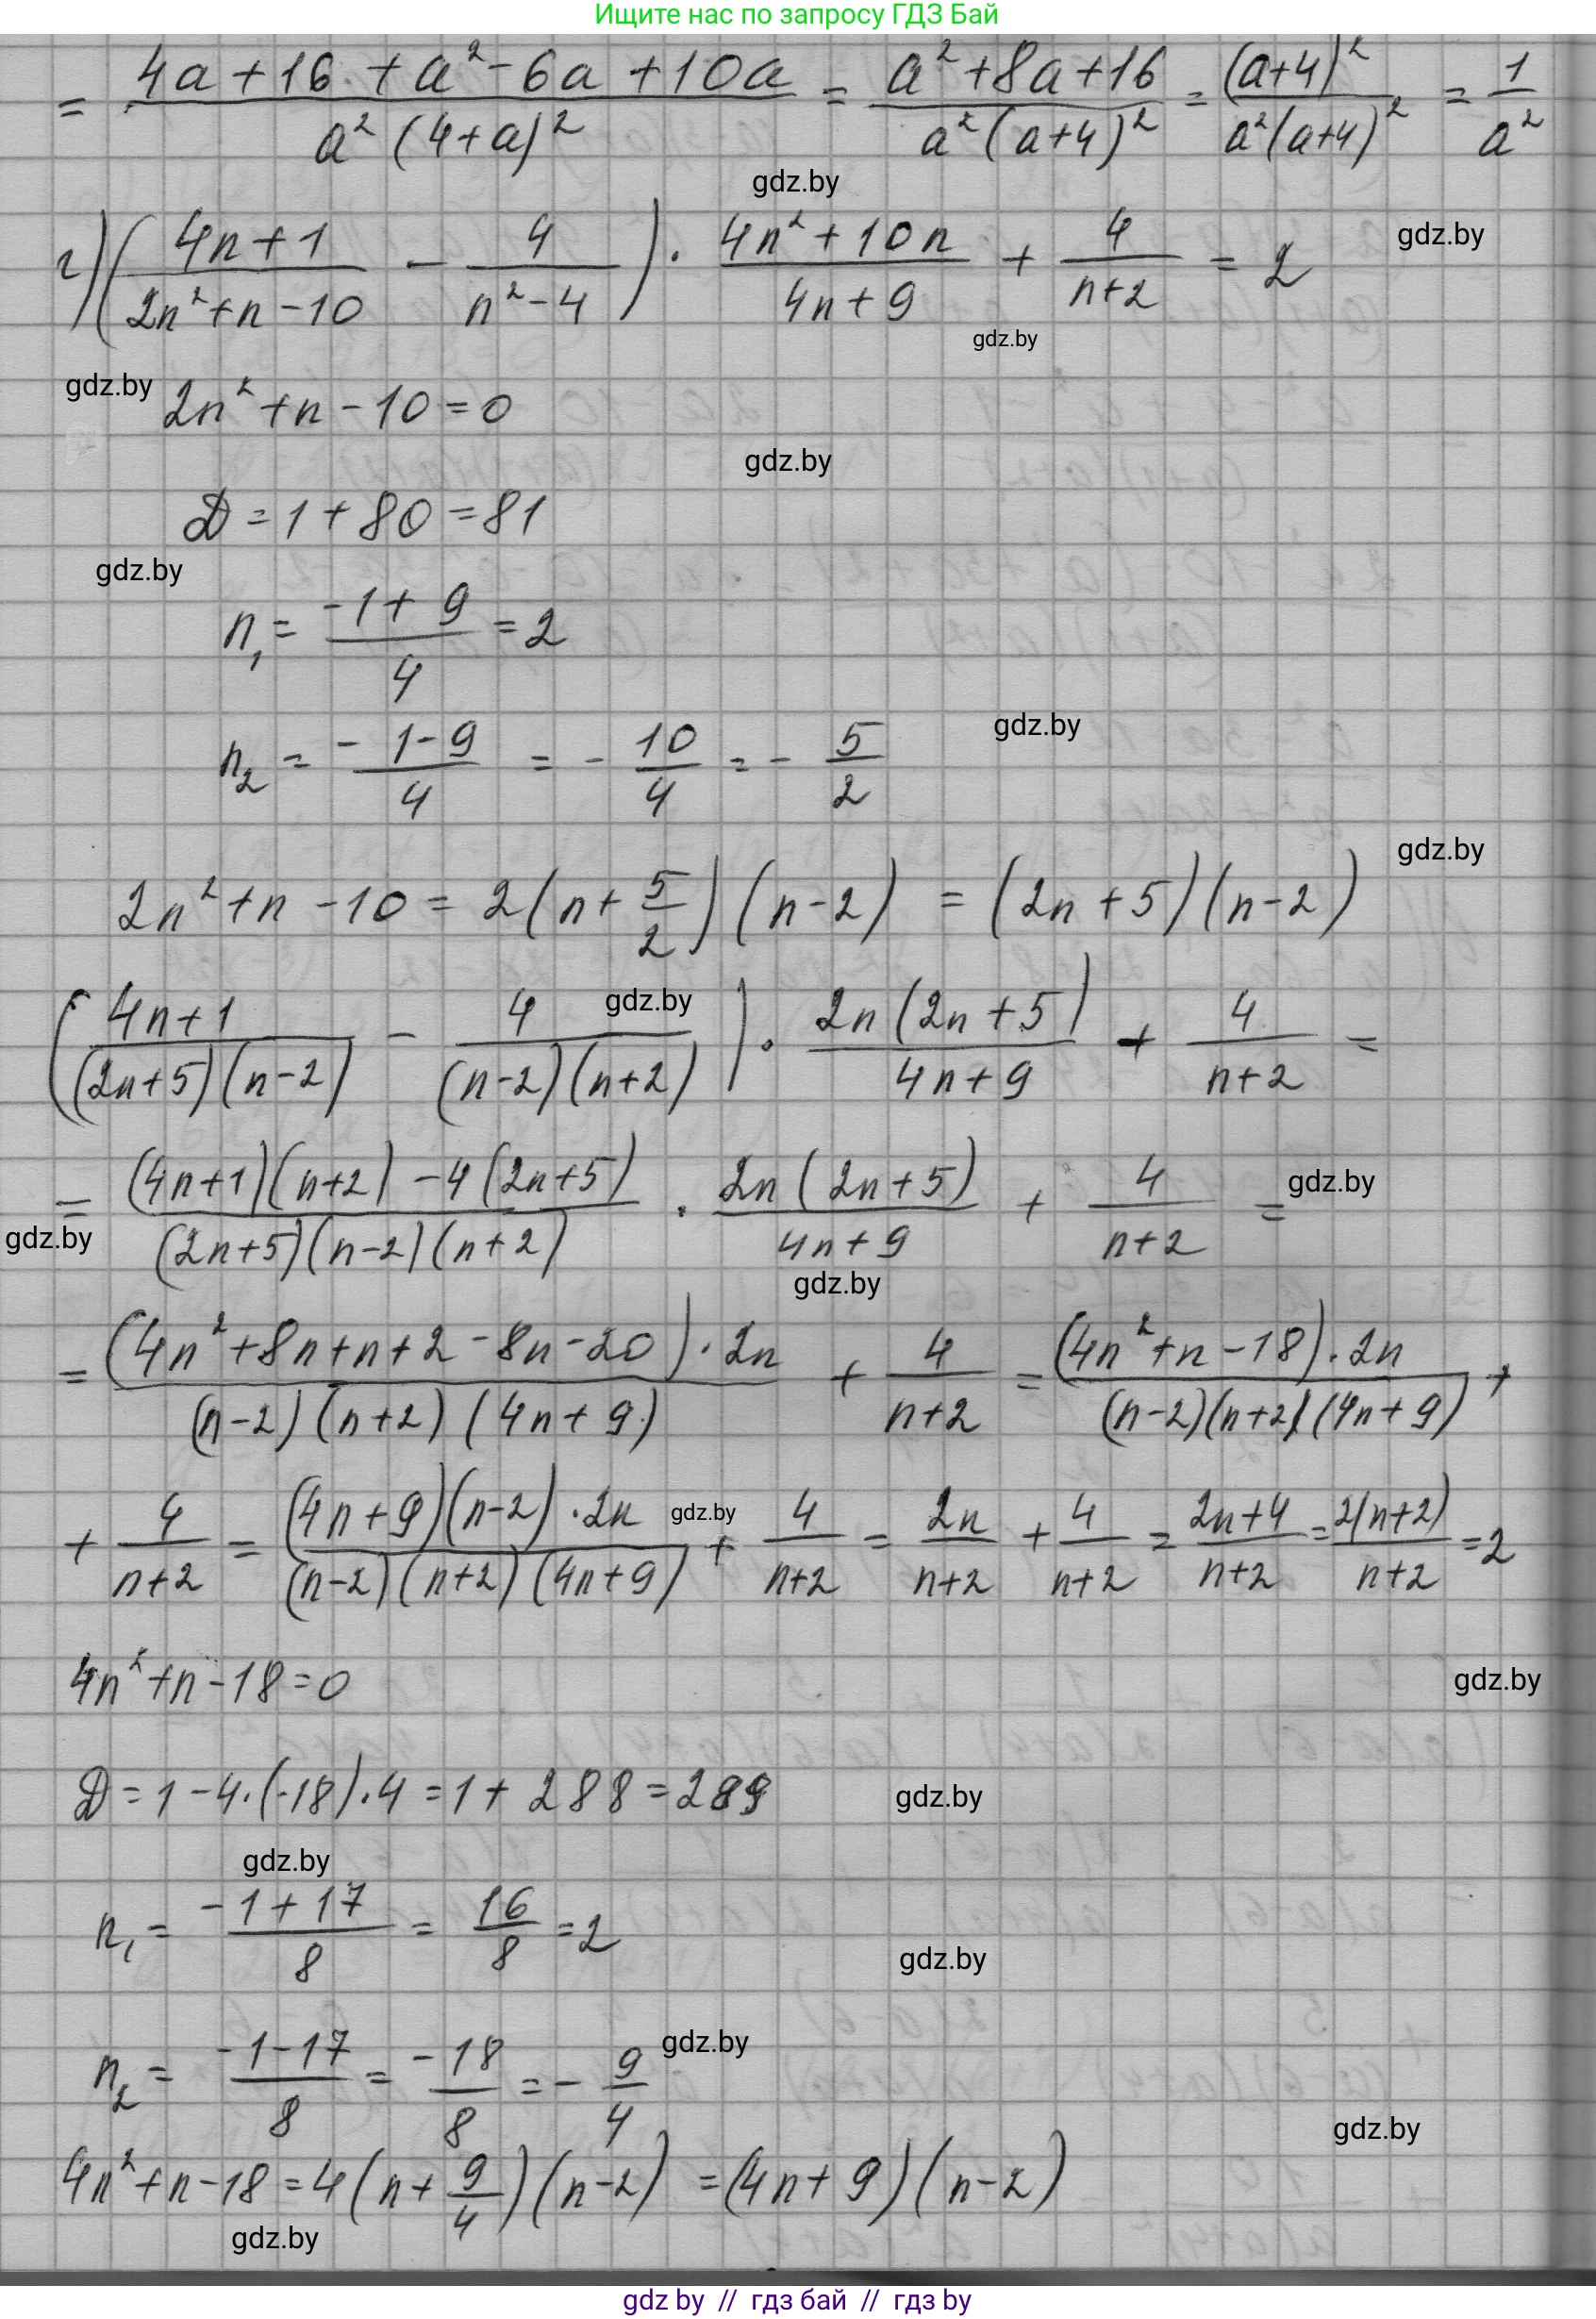 Ищите нас по запросу ГДЗ Бай
= (4a+16+a²-6a+10a)/(a²(4+a)²) = (a²+8a+16)/(a²(a+4)²) = (a+4)²/(a²(a+4)²) = 1/a²
gdz.by
г) ((4n+1)/(2n²+n-10) - 4/(n²-4)) · (4n²+10n)/(4n+9) + 4/(n+2) = 2
gdz.by
gdz.by
gdz.by
2n²+n-10=0
gdz.by
D=1+80=81
gdz.by
n₁ = (-1+9)/4 = 2
n₂ = (-1-9)/4 = -10/4 = -5/2
gdz.by
gdz.by
2n²+n-10 = 2(n+5/2)(n-2) = (2n+5)(n-2)
((4n+1)/((2n+5)(n-2)) - 4/((n-2)(n+2))) · (2n(2n+5))/(4n+9) + 4/(n+2) =
gdz.by
= ((4n+1)(n+2)-4(2n+5))/((2n+5)(n-2)(n+2)) · (2n(2n+5))/(4n+9) + 4/(n+2) =
gdz.by
gdz.by
gdz.by
= ((4n²+8n+n+2-8n-20)·2n)/((n-2)(n+2)(4n+9)) + 4/(n+2) = ((4n²+n-18)·2n)/((n-2)(n+2)(4n+9)) +
+ 4/(n+2) = ((4n+9)(n-2)·2n)/((n-2)(n+2)(4n+9)) + 4/(n+2) = 2n/(n+2) + 4/(n+2) = (2n+4)/(n+2) = 2(n+2)/(n+2) = 2
gdz.by
4n²+n-18=0
gdz.by
D=1-4·(-18)·4=1+288=289
gdz.by
gdz.by
n₁ = (-1+17)/8 = 16/8 = 2
gdz.by
n₂ = (-1-17)/8 = -18/8 = -9/4
gdz.by
gdz.by
4n²+n-18=4(n+9/4)(n-2) = (4n+9)(n-2)
gdz.by
gdz by // гдз бай // гдз by